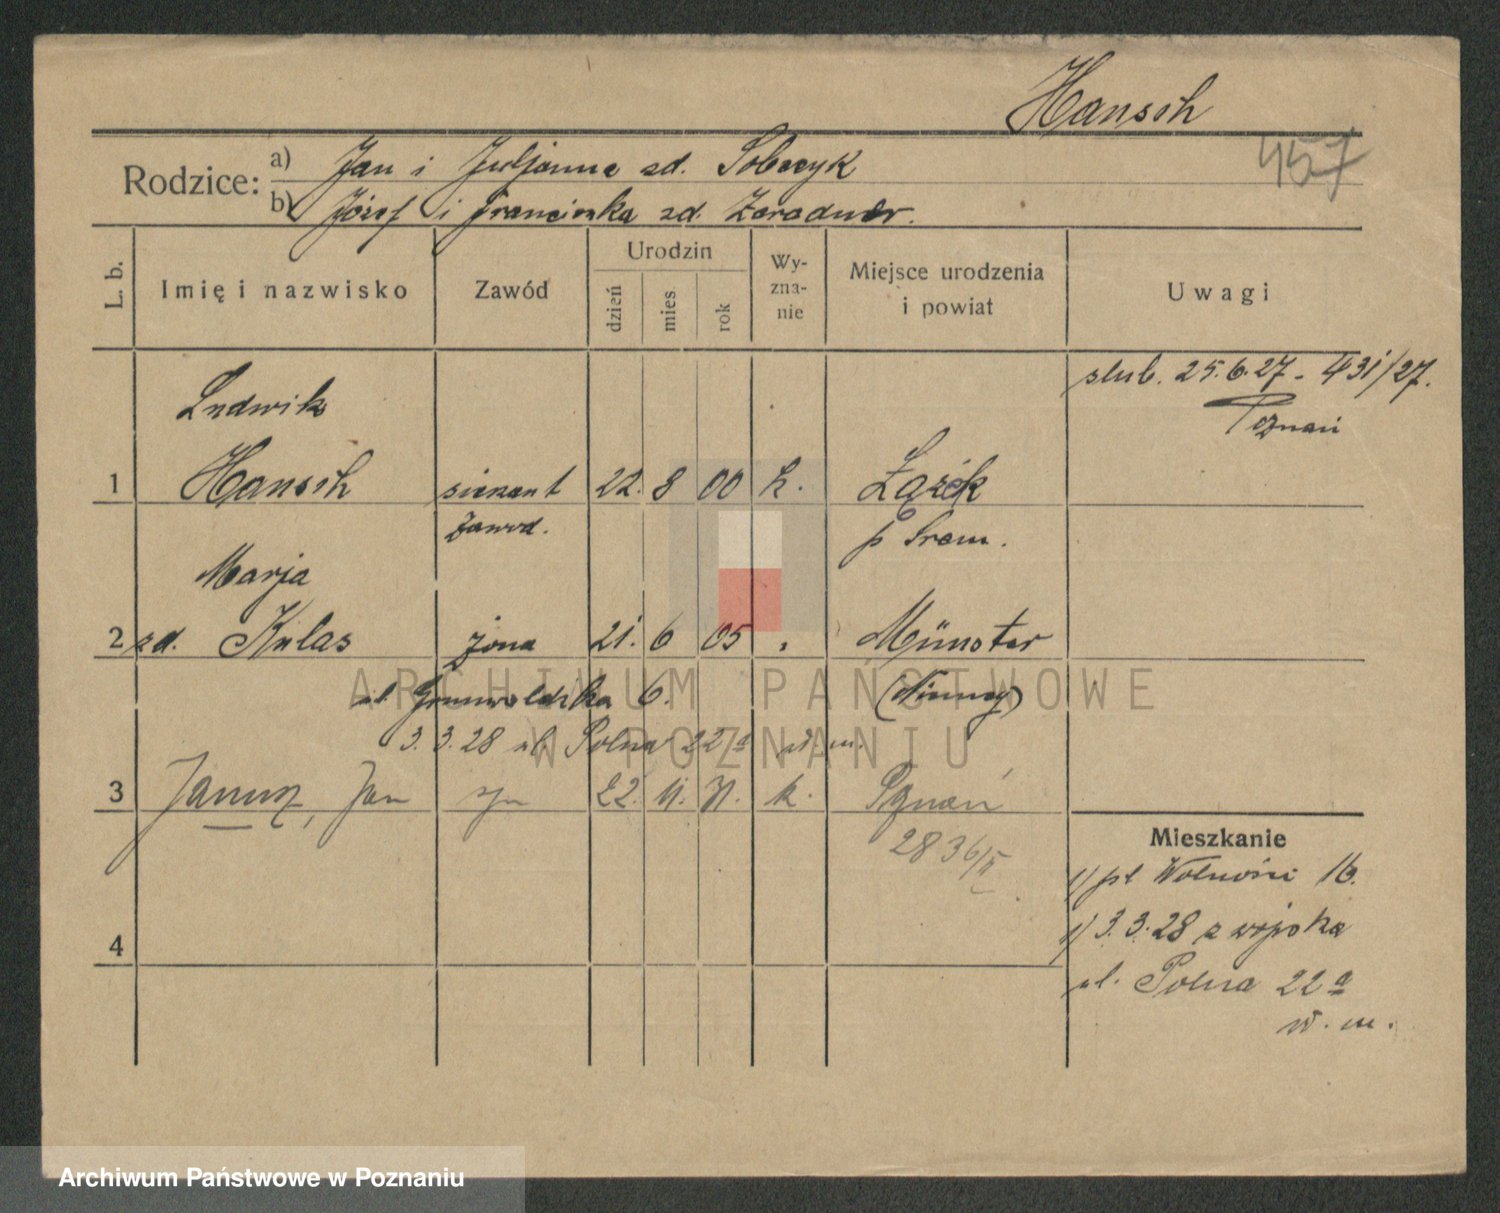 Hansch
457
Rodzice: a) Jan i Juljanna zd. Sobczyk
b) Józef i Franciszka zd. Zaradner.
L. b. Imię i nazwisko Zawód Urodzin dzień mies. rok Wy-zna-nie Miejsce urodzenia i powiat Uwagi
ślub. 25.6.27 - 431/27.
Poznań
Ludwik
1 Hansch sierżant 22. 8 00 k. Łążek
zawod. p Śrem.
Marja
2 zd. Kulas żona 21. 6 05 " Münster
ul. Grunwaldzka 6. (Niemcy)
3.3.28 ul. Polna 22a w m.
3 Janusz, Jan syn 22. 11. 31. k. Poznań
2836/II
Mieszkanie
1) pl Wolności 16.
4
1) 3.3.28 z wojska
ul. Polna 22a
w. m.
ARCHIWUM PAŃSTWOWE
W POZNANIU
Archiwum Państwowe w Poznaniu